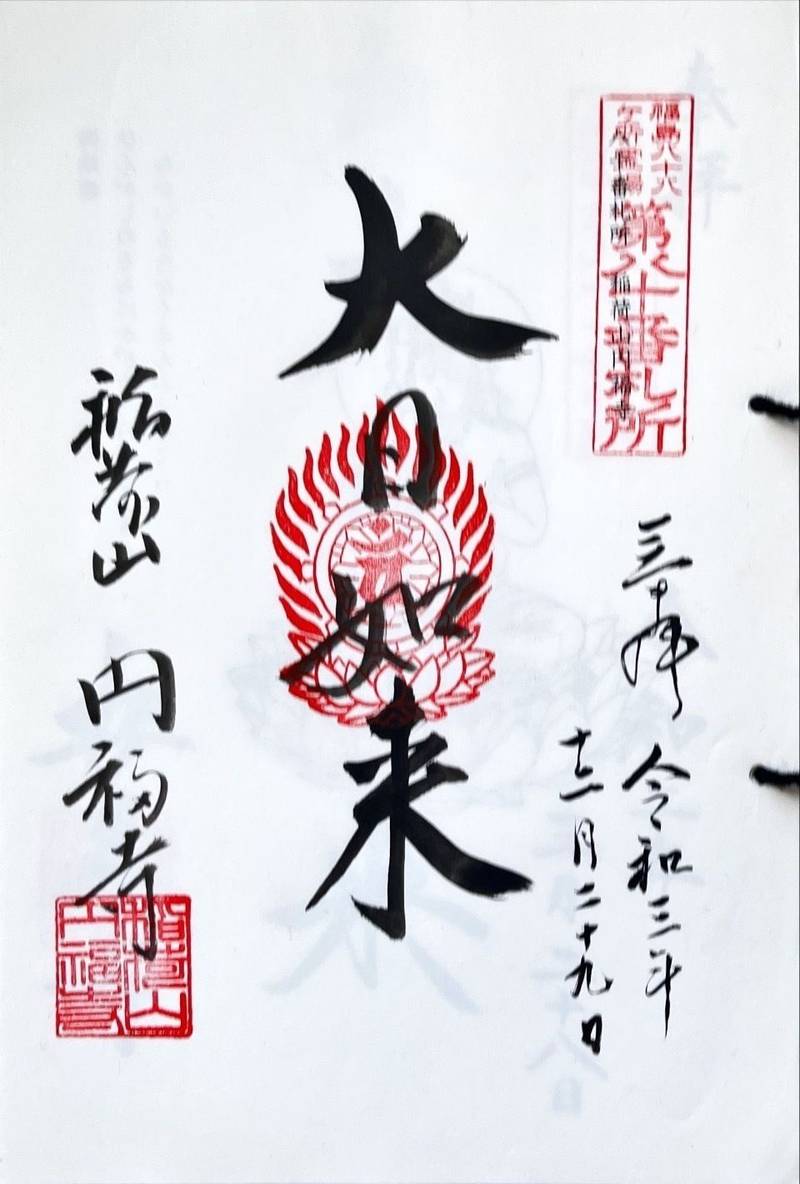 福島八十八
ケ所霊場
第八十番札所
番札所 稲荷山円福寺
奉拝 令和三年
十二月二十九日
大日如来
稲荷山 円福寺
稲荷山
円福寺